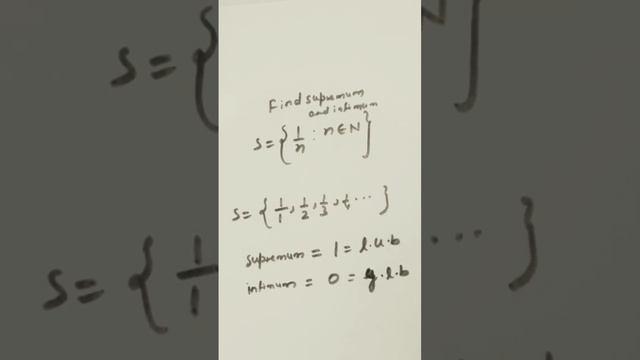 Find supremum
and infimum
S = { 1/n : n ∈ N }
S = { 1/1, 1/2, 1/3, 1/4, ... }
supremum = 1 = l.u.b
infimum = 0 = g.l.b